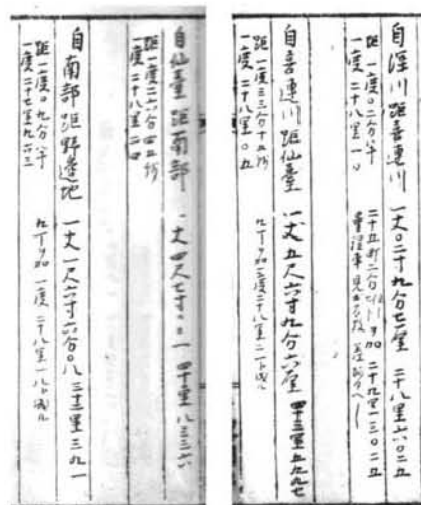 自深川距喜連川 一丈〇二寸九分七厘 二十八里六〇二五
距一度〇二分半 二十五町二分 ヲ加 二十九里一三〇二五
一度二十八里一〇 量程車見
自喜連川距仙臺 一丈五尺六寸九分六厘 四十三里五九九七
距一度三三分十五抄
一度二十八里〇五 九丁ヲ加一度二十八里二一ト成ル
自仙臺距南部 一丈四尺七寸〇〇一 四十里八三三六
距一度二六分四五抄
一度二十八里二四
自南部距野邊地 一丈一尺六寸六分〇八 三十二里三九一
距一度〇九分半
一度二十七里九六三 九丁ヲ加一度二十八里一八ト成ル